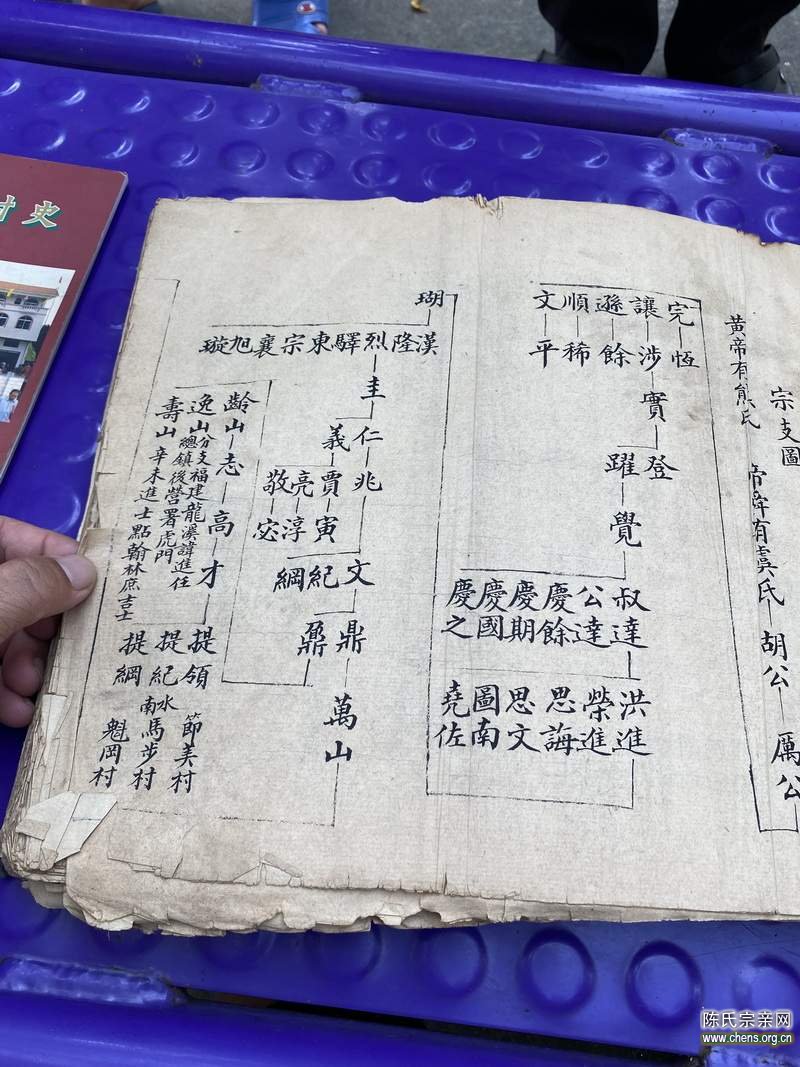 宗支圖
黃帝有熊氏
帝舜有虞氏
胡公
厲公
完 讓 遜 順 文
恆 涉 餘 稀 平
實
登 躍
覺
叔達 公達 慶餘 慶期 慶國 慶之
洪進 榮進 思誨 思文 圖南 堯佐
瑚
漢 隆 烈 驛 東 宗 襄 旭 璇
圭
仁 義
兆 賈 亮 敬
寅 淳 宓
文 紀 綱
鼎 鼐
萬山
齡山 志高 才
逸山 分支福建龍溪諱進任
總鎮後營署虎門
壽山 辛未進士點翰林庶吉士
提領 節美村
提紀 水南馬步村
提綱 魁岡村
村史
陈氏宗亲网
www.chens.org.cn